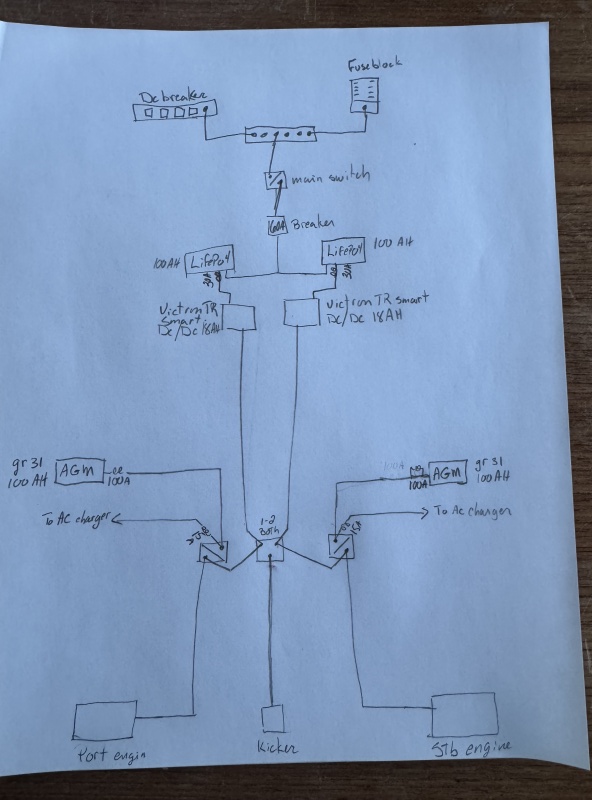 Fuseblock
Dc breaker
main switch
60A Breaker
100AH LifePo4
LifePo4 100 AH
30A
30A
Victron TR smart Dc/Dc 18AH
Victron TR smart
Dc/Dc 18AH
gr 31
100 AH
AGM
100A
100A
AGM
gr 31
100 AH
To AC charger
1-2
Both
15A
To Ac charger
Port engin
Kicker
Stb engine